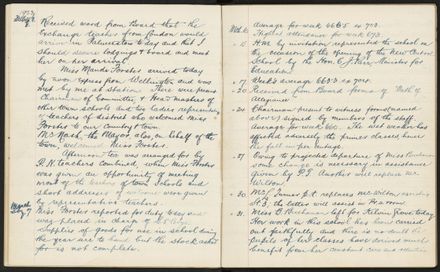 Received word from Board that the
Exchange teacher from London would
arrive in Palmerston to day and that I
should secure lodgings & board and meet
her on her arrival.
Miss Maude Forster arrived today
by noon express from Wellington and was
met by me at station. There were present
Chairman of Committee & Head Masters of
other town schools and two ladies representing
teachers of district who welcomed Miss
Forster to our Country & town.
Mr Nash, the Mayor, also on behalf of the
town, welcomed Miss Forster.
Afternoon tea was arranged for by
P.N. Teachers' Institute, when Miss Forster
was given an opportunity of meeting
most of the teachers of town schools and
short addresses of welcome were given
by representative teachers.
Miss Forster reported for duty today and
was placed in charge of
Supplies of goods for use in school during
the year are to hand but the stock asked
for is not complete.
average for week 668.5 as 703.
Highest attendance for week 678.
15 H.M. by invitation represented the school on
the occasion of the opening of the New Central
School by the Hon. C. J. Parr Minister for
Education
17 Week's average 669.3 as 704.
20 Received from Board forms of "Oath of
Allegiance"
24 Chairman present to witness forms (named
above) signed by members of the staff.
Average for week 660. The wet weather has
affected adversely the primer classes hence
the fall in percentage.
27 Owing to projected departure of Miss Buchanan
some change is necessary in assistance
given by P.T. Another will replace Mr
Wilson.
30 Mr Jones P.T. replaces Mr Wilson
St 3, the latter will assist in Pr. room
31 Miss B. Buchanan left for Kelvin Grove today
Her work in this school has been carried
out faithfully and there is no doubt the
pupils of her classes have derived much
benefit from her constant care and